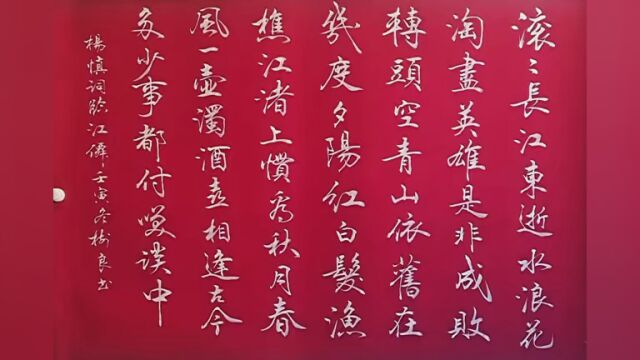 滚〻長江東逝水浪花
淘盡英雄是非成敗
轉頭空青山依舊在
幾度夕陽紅白髮漁
樵江渚上慣看秋月春
風一壺濁酒喜相逢古今
多少事都付笑談中
楊慎詞臨江僊壬寅冬樹良书